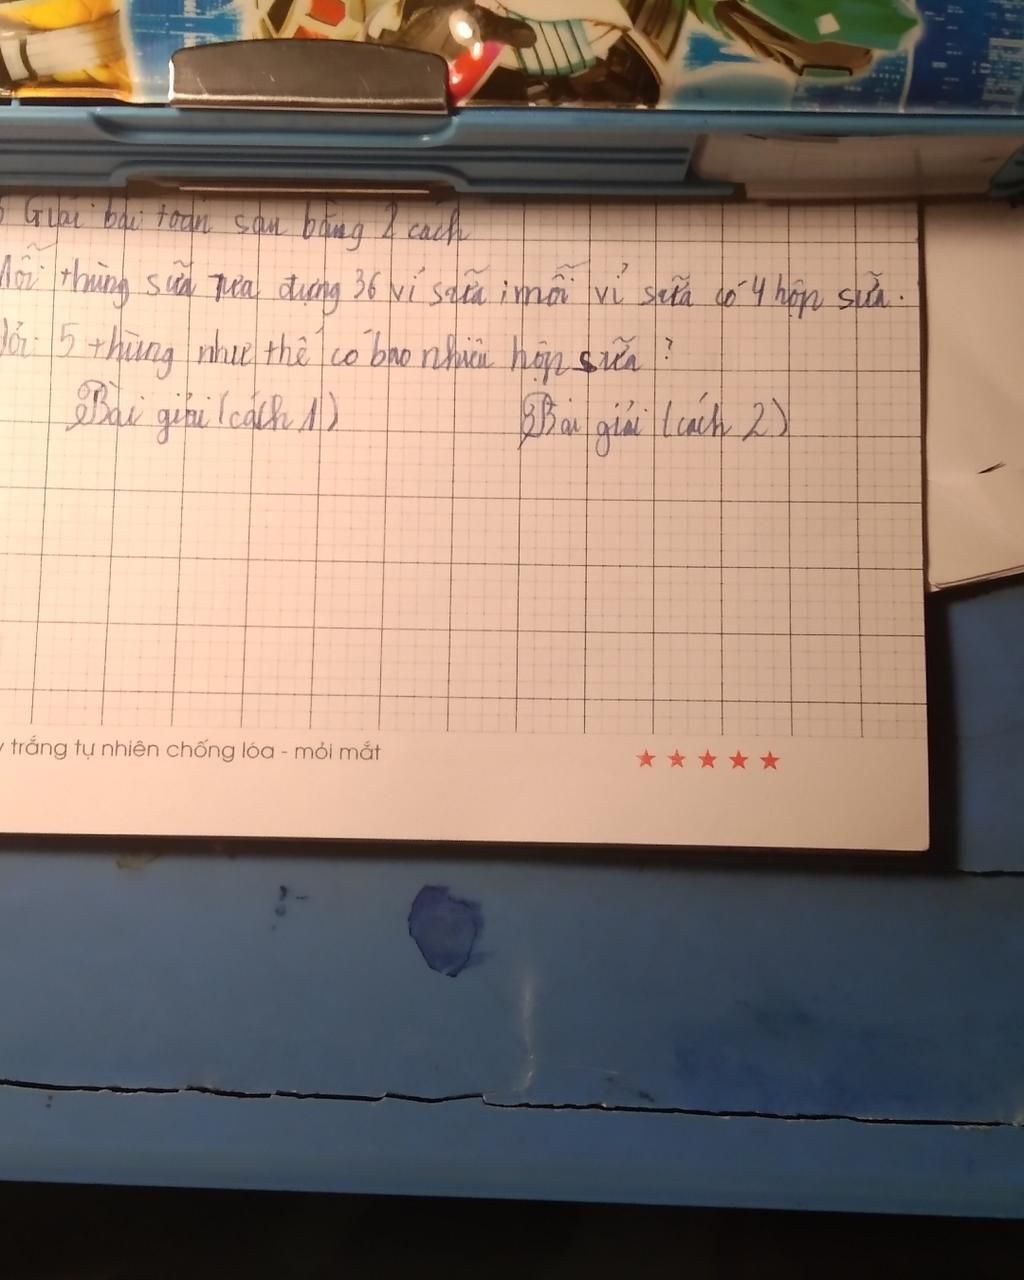 Giải bài toán sau bằng 2 cách
Mỗi thùng sữa đựng 36 vỉ sữa, mỗi vỉ sữa có 4 hộp sữa.
Hỏi 5 thùng như thế có bao nhiêu hộp sữa?
Bài giải (cách 1) Bài giải (cách 2)
trắng tự nhiên chống lóa - mỏi mắt